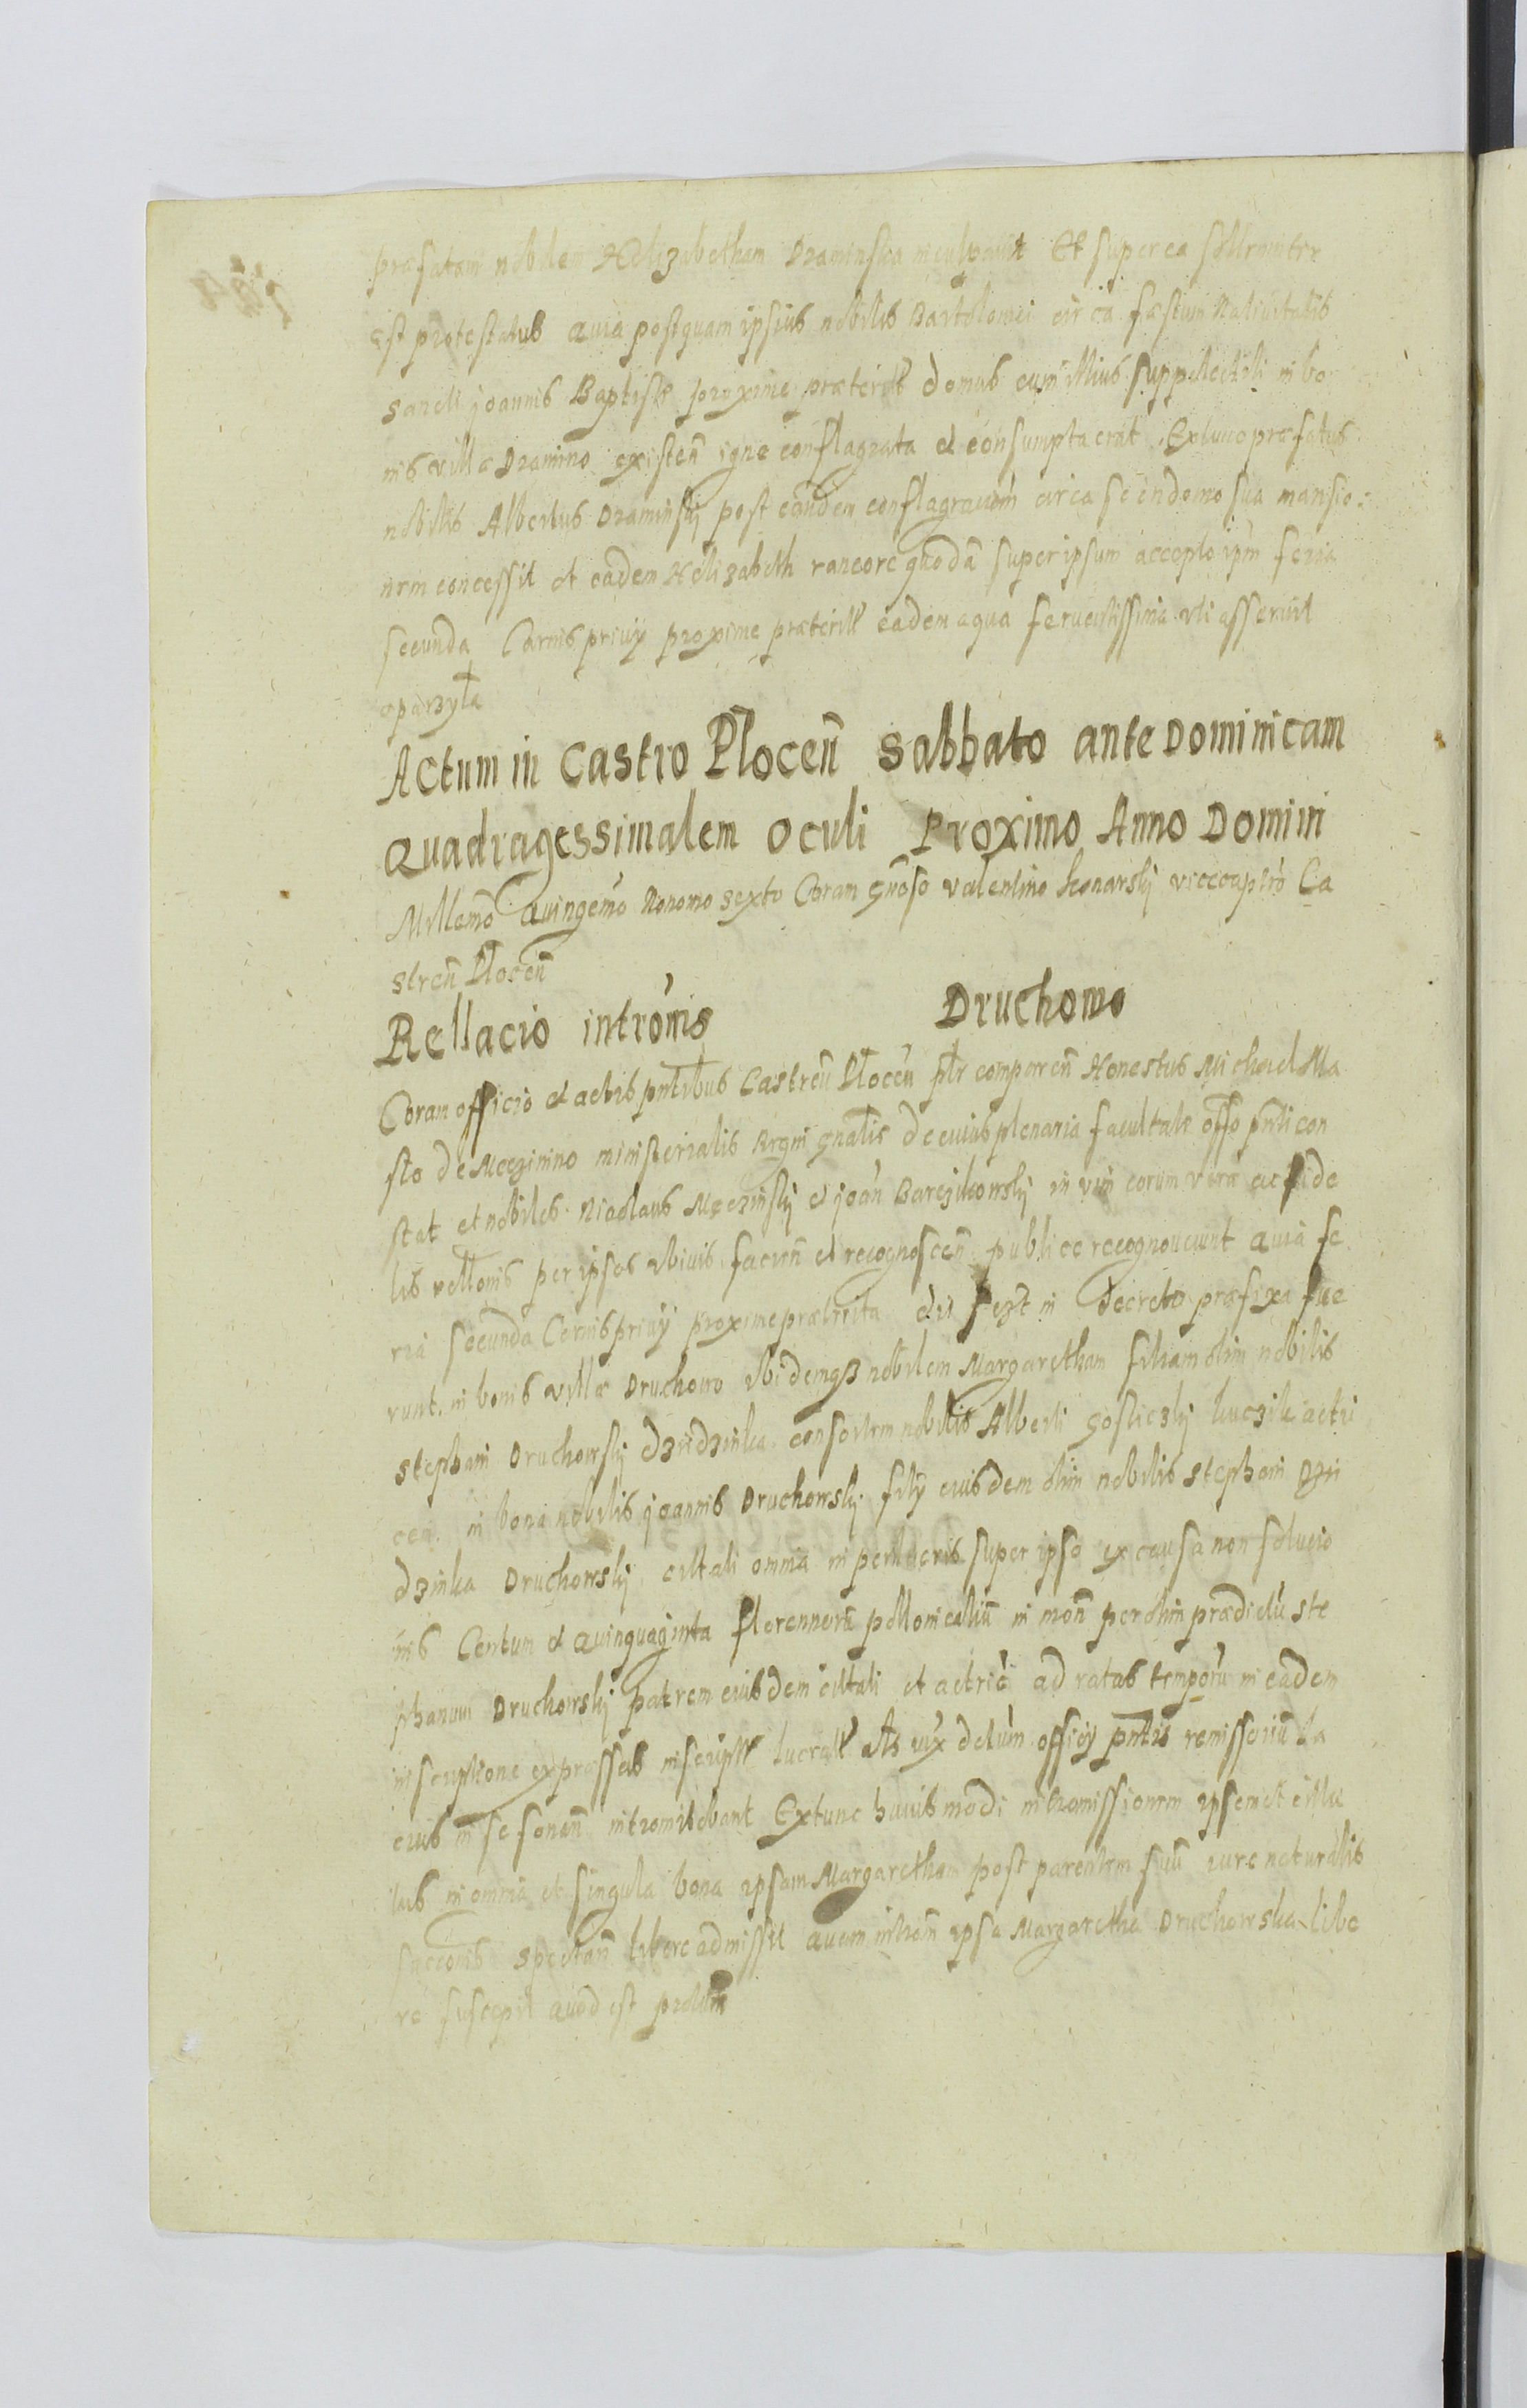 præfatam nobilem Helizabetham Draminska inculpavit Et super ea sollemniter
est protestatus Quia postquam ipsius nobilis Bartolomei circa fæstum Nativitatis
Sancti Joannis Baptistæ proxime præterit domus cum illius suppellectili in bo
nis villæ Dramino existen̄ igne conflagrata et consumpta erat Extunc præfatus
nobilis Albertus Draminskj post eandem conflagracōm circa se in domo sua mansio:
nem concessit et eadem Helizabeth rancore quodā super ipsum accepto ipm feria
secunda Carnisprivij proxime præterit eadem aqua ferventissima uti asseruit
oparzyła
Actum in Castro Plocen̄ Sabbato ante Dominicam
Quadragessimalem Oculi Proximo Anno Domini
Millemō Quingemō Nonomo sexto Coram Gn̄oso Valentino Konarskj vicecaptrō Ca
stren̄ Plocen̄
Rellacio intromis Druchowo
Coram officio et actis pn̄tibus Castren̄ Plocen̄ pl̄r comparen̄ Honestus Michael Ma
sto de Meczinino ministerialis Regni gn̄alis de cuius plenaria facultate offo pn̄ti con
stat et nobiles Nicolaus Meczinskj et Joan̄ Barczikowskj in vim eorum veræ ac fide
lis rellonis per ipsos ubivis facien̄ et recognoscen̄ publice recognoverunt Quia fe
ria secunda Carnisprivij proxime præterita in decreto præfixa fue
runt in bonis villæ Druchowo ibidemqз nobilem Margaretham filiam olim nobilis
Stephani Druchowskj dzidzinka consortem nobilis Alberti Gosliczkj actri
cea in bona nobilis Joannis Druchowskj filij eiusdem olim nobilis Stephani Dzi
dzinka Druchowskj citati omnia super ipso ex causa non solucio
nis Centum et Quinquaginta florennorū pollonicaliū in mon̄ per olim prædictū Ste
phanum Druchowskj patrem eiusdem citati et actrici ad ratas temporū in eadem
inscriptione expressas inscript lucrat officij pn̄tis remissoriū
eius in se sonan̄ intromittebant Extunc huiusmodi intromissionem ipsemet cita
tus in omnia et singula bona ipsam Margaretham post parentem suū iure naturalis
succonis spectan̄ libere admissit Quam ipsa Margaretha Druchowska libe
re suscepit Quod est